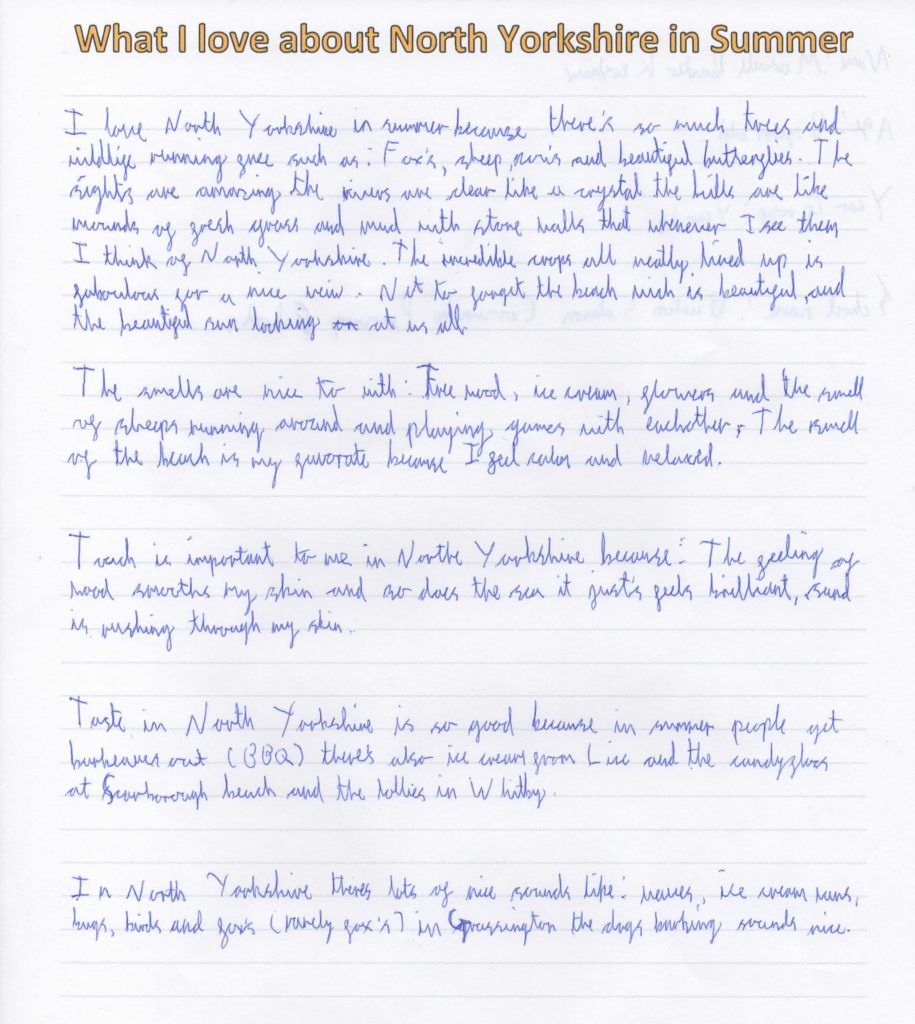 What I love about North Yorkshire in Summer
I love North Yorkshire in summer because there's so much trees and
wildlife running free such as: Fox's, sheep, and beautiful butterflies. The
sights are amazing the rivers are clear like a crystal the hills are like
mounds of fresh grass and mud with stone walls that whenever I see them
I think of North Yorkshire. The incredible crops all neatly lined up is
faboulous for a nice veiw. Not to forget the beach wich is beautiful, and
the beautiful sun looking at us all.
The smells are nice to with: Tree wood, ice cream, flowers and the smell
of sheeps running around and playing games with eachother, The smell
of the beach is my favorate because I feel calm and relaxed.
Touch is important to me in North Yorkshire because: The feeling of
wood smooths my skin and so does the sea it just's feels brilliant, sand
is rushing through my skin.
Taste in North Yorkshire is so good because in summer people get
out (BBQ) there's also ice cream from and the candyfloss
at Scarborough beach and the lollies in Whitby.
In North Yorkshire theres lots of nice sounds like: waves, ice cream vans,
bugs, birds and fox's (rarely fox's) in Grassington the dogs barking sounds nice.